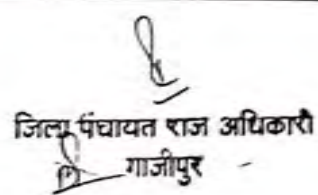 जिला पंचायत राज अधिकारी
गाजीपुर